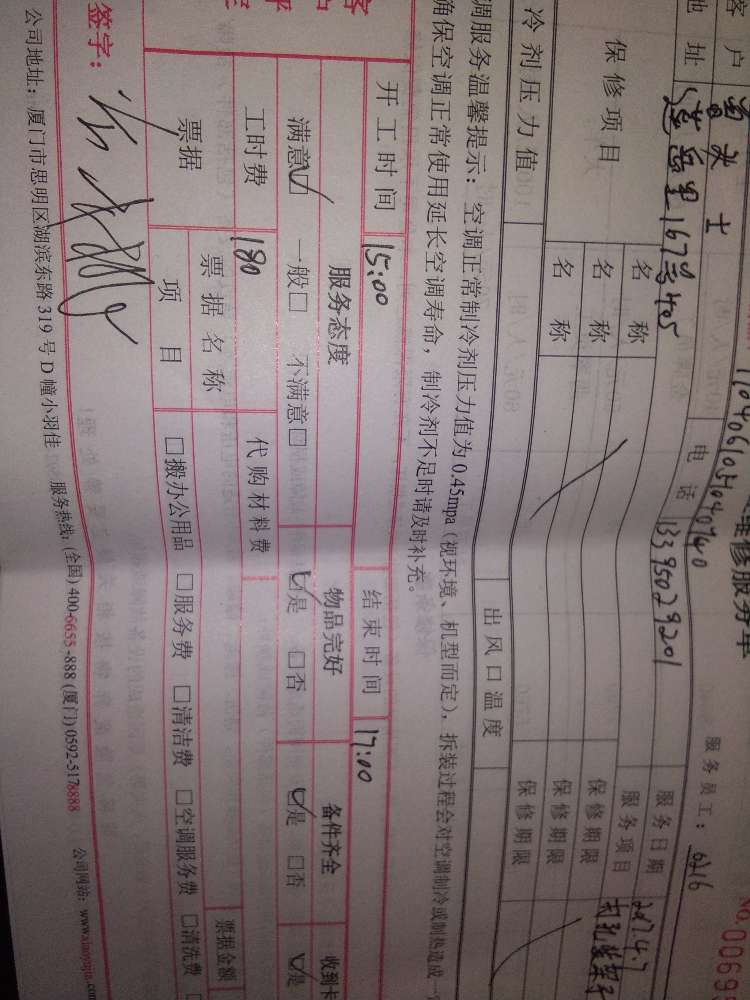 维修服务单
No.
服务员工：6216
客户
女士
电话 13395029201
服务日期 2017.4.7
地址 莲岳里167号405
服务项目
保修项目
名称 保修期限
名称 保修期限
名称 保修期限
冷剂压力值 出风口温度
调服务温馨提示：空调正常制冷剂压力值为0.45mpa（视环境、机型而定），拆装过程会对空调制冷或制热造成一
确保空调正常使用延长空调寿命，制冷剂不足时请及时补充。
开工时间 15:00 结束时间 17:00
服务态度 物品完好 备件齐全 收到卡
满意☑ 一般□ 不满意□ ☑是 □否 ☑是 □否 ☑是
工时费 180 代购材料费
票据 票据名称 票据金额
项目 □搬办公用品 □服务费 □清洁费 □空调服务费 □清洗费
签字：
公司地址：厦门市思明区湖滨东路319号D幢小羽佳 服务热线：(全国) 400-6655-888 (厦门) 0592-5178888 公司网站：www.xiaoyujia.com